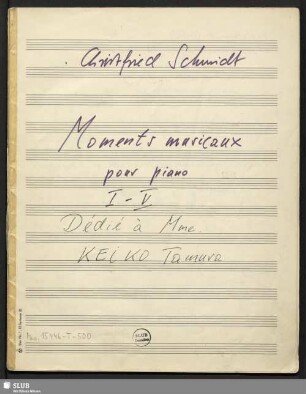 Christfried Schmidt
Moments musicaux
pour piano
I - V
Dédié à Mme.
KEIKO Tamura
15446-T-500
SLUB
SLUB